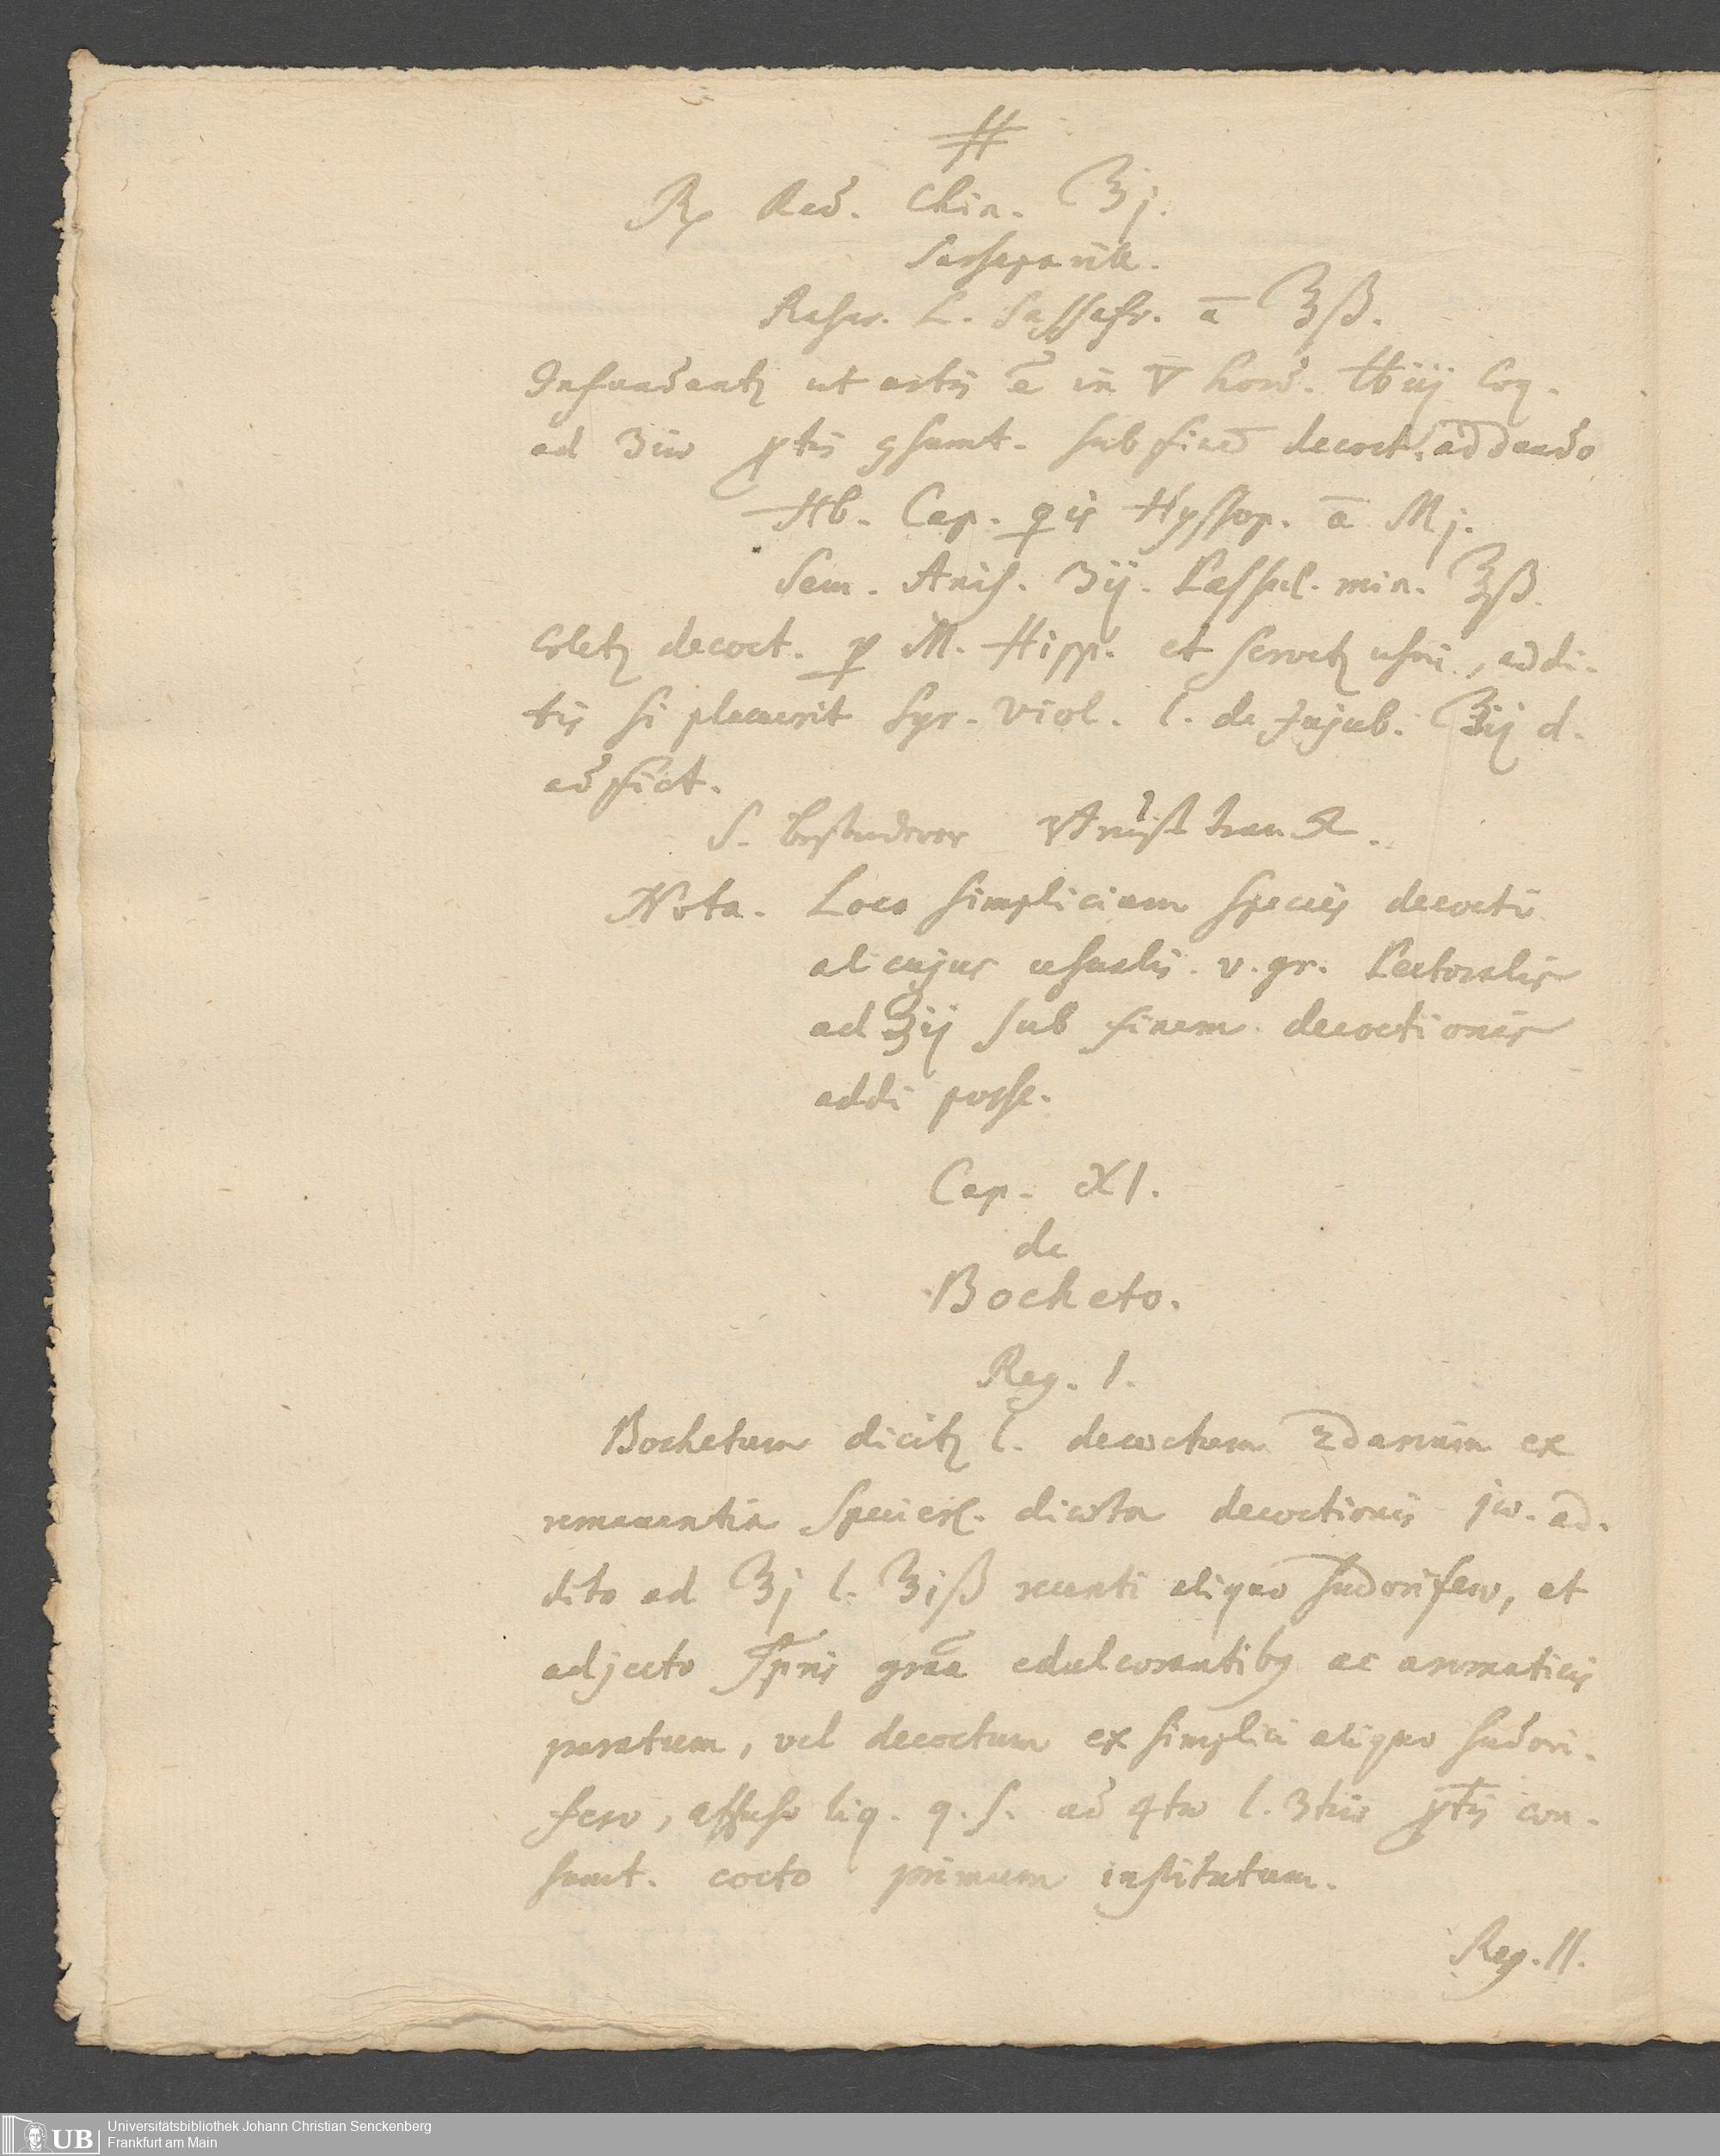 #
℞ Rad. Chin. ℥j.
Sarsaparill.
Rasur. L. Sassafr. a ℥ß.
Infundantʒ ut artis e in ▽ hord. ℔iij Coq.
ad 3iæ ptis gsumt. sub fined decoct. addendo
Hb. Cap. ♀is Hyssop. a Mj.
Sem. Anis. ʒij. Passul. min. ℥ß.
Coletʒ decoct. p M. Hipp. et servetʒ usui, addi-
tis si placuerit Syr. Viol. l. de Jujub. ℥ij d.
ad fict.
S. besonderer Brust tranck.
Nota. Loco simplicium species decocti
alicujus usualis v. gr. Pectoralis
ad ℥ij sub finem decoctionis
addi posse.
Cap. XI.
de
Bocheto.
Reg. I.
Bochetum dicitʒ l. decoctum 2darium ex
remanentia Specier. dicta decoctionis jw. ad-
dito ad ℥j l. ℥iß recenti aliquo Sudorifero, et
adjecto Spris graa edulcorantibʒ ac aromaticis
paratum, vel decoctum ex simplici aliquo Sudori-
fero, affuso liq. q. s. ad 4tæ l. 3tiæ ptis con-
sumt. cocto primum institutum.
Reg. II.
Universitätsbibliothek Johann Christian Senckenberg
Frankfurt am Main
UB